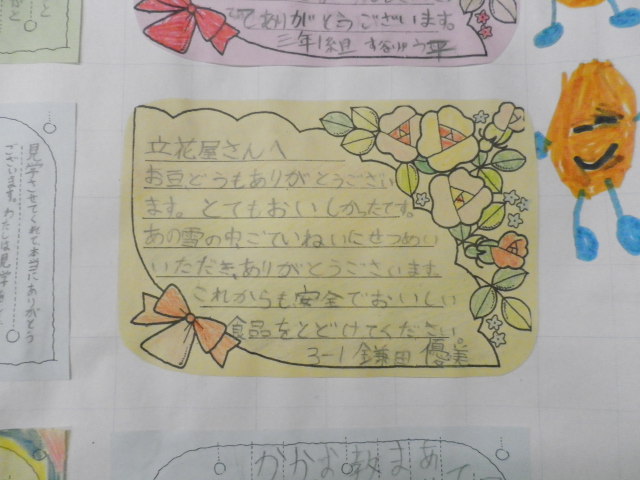 てありがとうございます。
三年1組
立花屋さんへ
お豆どうもありがとうござい
ます。とてもおいしかったです。
あの雪の中ごていねいにせつめい
いただき、ありがとうございます。
これからも安全でおいしい
食品をとどけてください。
3-1 鎌田 優美
見学させてくれて、本当にありがとう
ございます。わたしは見学